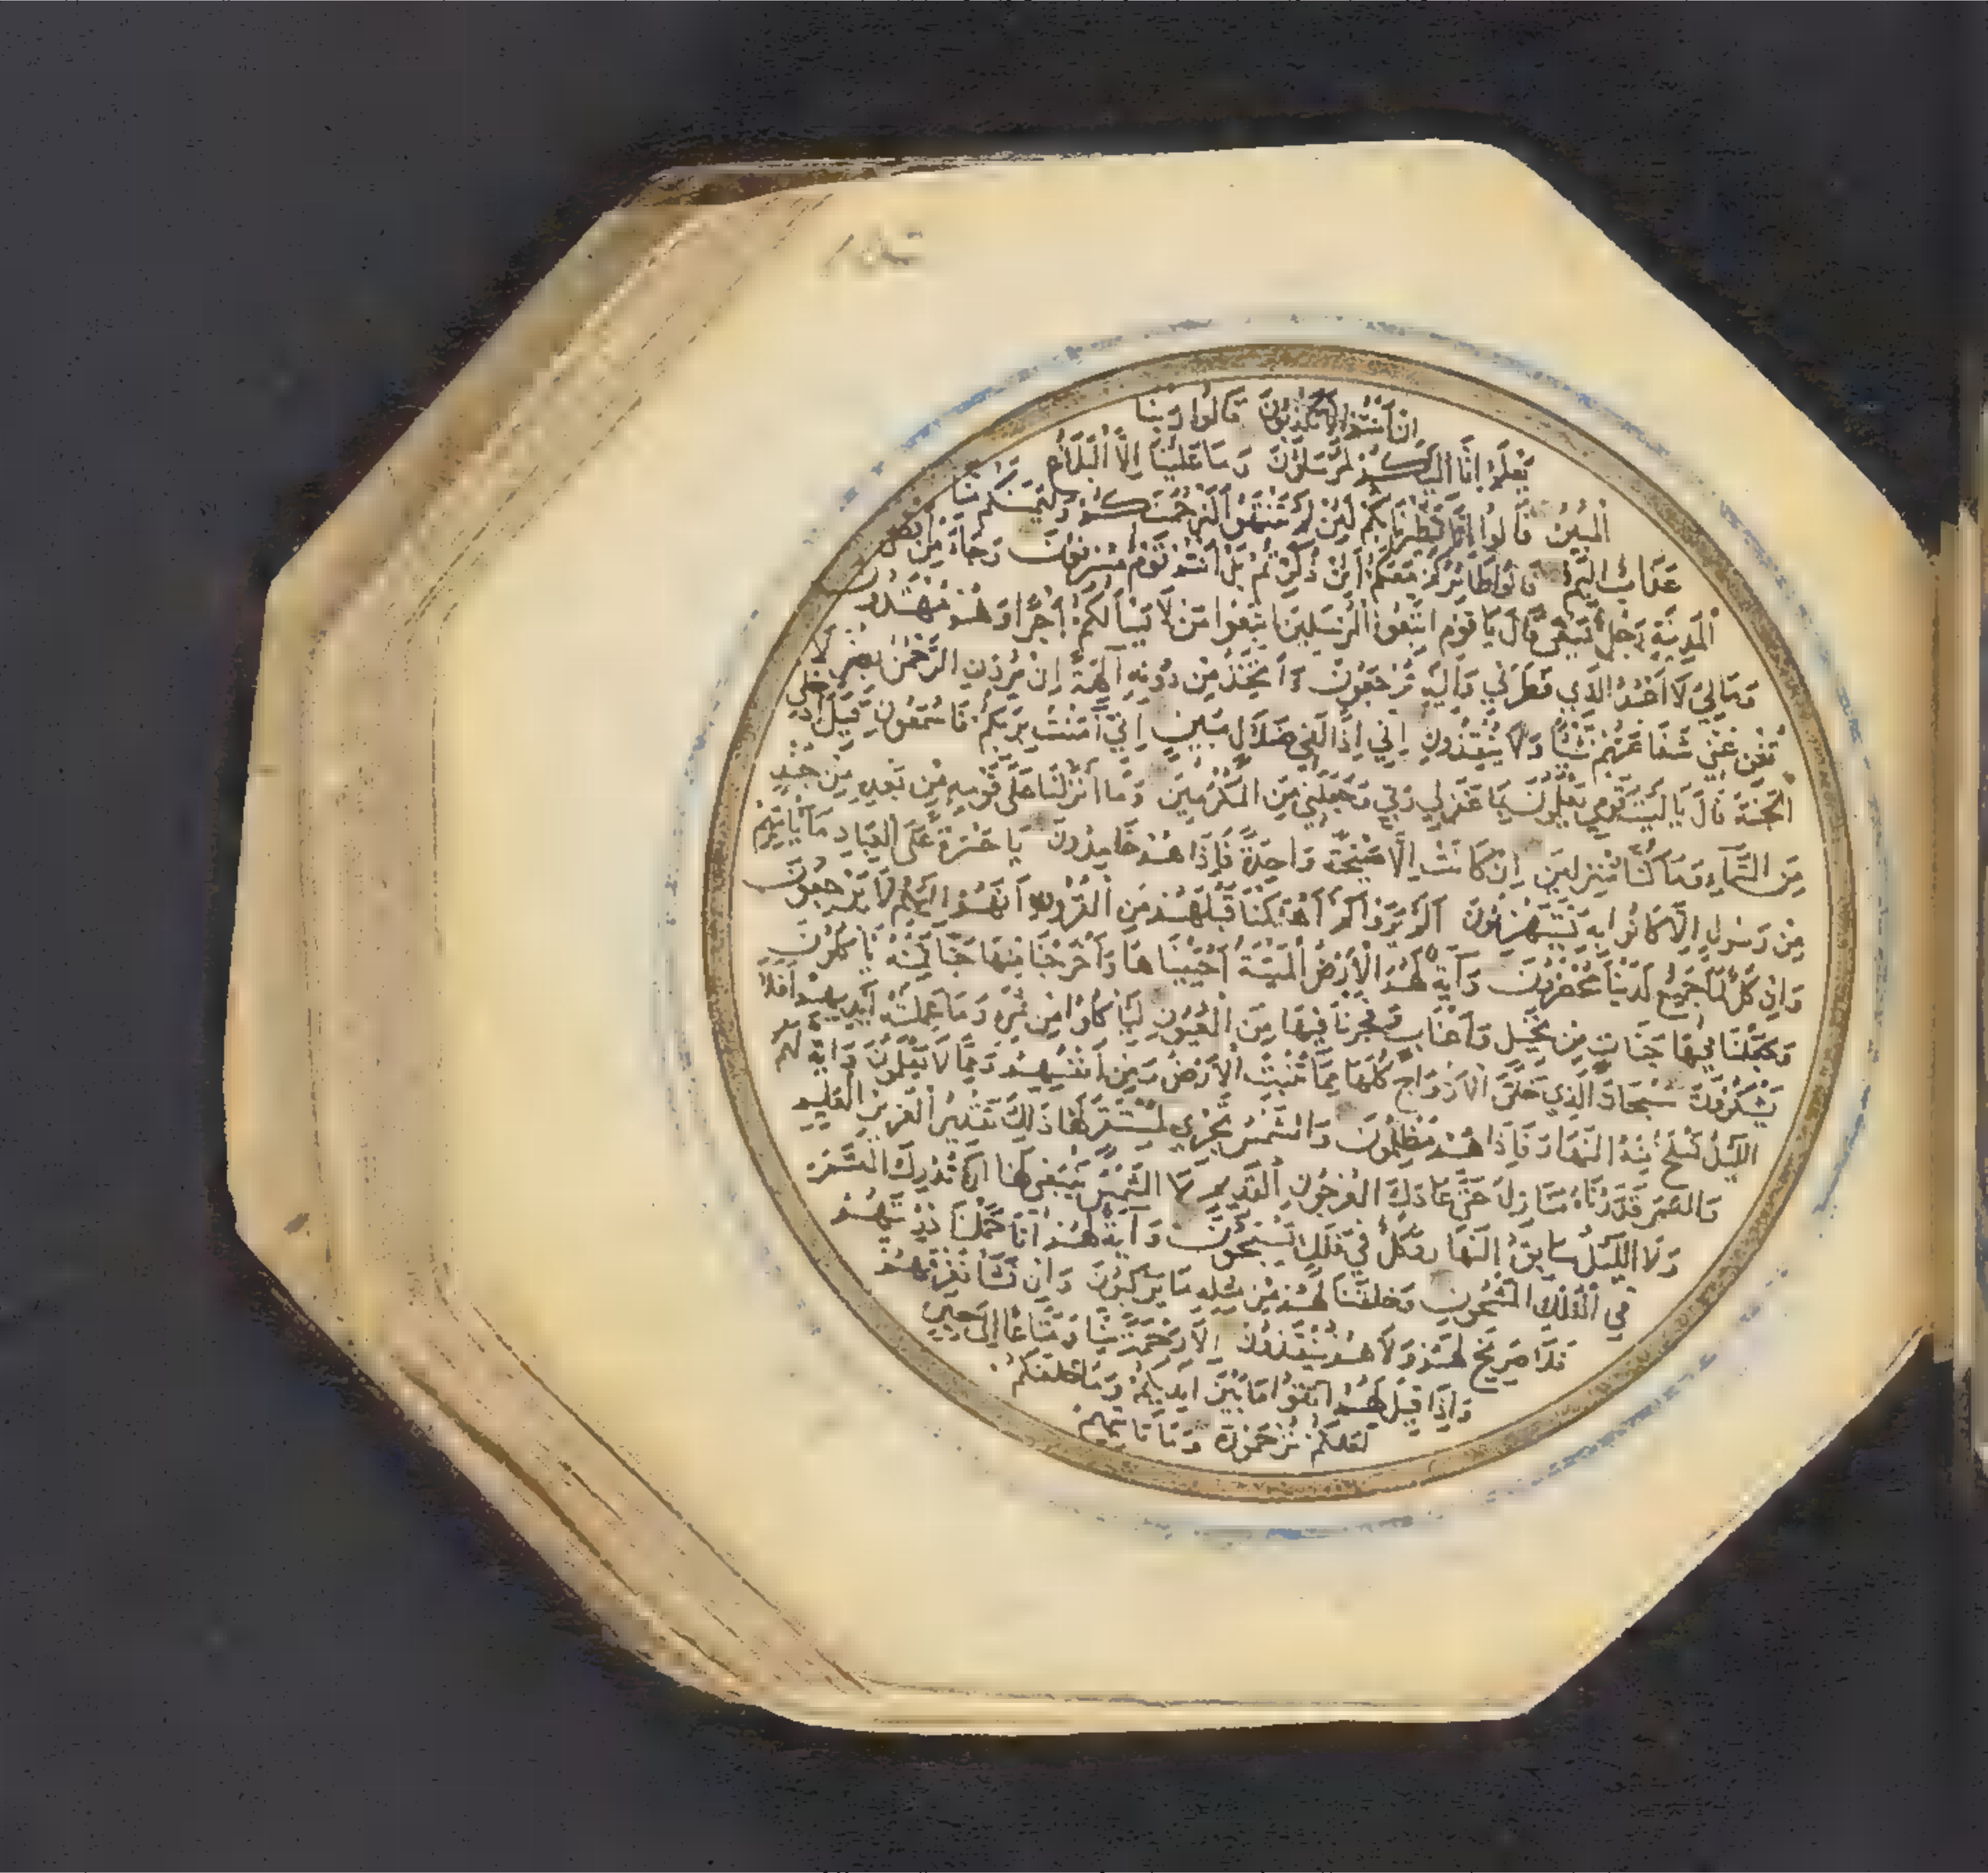 ان أنتم إلا تكذبون قالوا ربنا
يعلم إنا إليكم لمرسلون وما علينا إلا البلاغ
المبين قالوا إنا تطيرنا بكم لئن لم تنتهوا لنرجمنكم وليمسنكم منا
عذاب اليم قالوا طائركم معكم أئن ذكرتم بل أنتم قوم مسرفون وجاء من اقصى
المدينة رجل يسعى قال يا قوم اتبعوا المرسلين اتبعوا من لا يسألكم أجرا وهم مهتدون
وما لي لا أعبد الذي فطرني وإليه ترجعون أأتخذ من دونه آلهة إن يردن الرحمن بضر لا
تغن عني شفاعتهم شيئا ولا ينقذون إني إذا لفي ضلال مبين إني آمنت بربكم فاسمعون قيل ادخل
الجنة قال يا ليت قومي يعلمون بما غفر لي ربي وجعلني من المكرمين وما أنزلنا على قومه من بعده من جند
من السماء وما كنا منزلين إن كانت إلا صيحة واحدة فإذا هم خامدون يا حسرة على العباد ما يأتيهم
من رسول إلا كانوا به يستهزئون ألم يروا كم أهلكنا قبلهم من القرون أنهم إليهم لا يرجعون
وإن كل لما جميع لدينا محضرون وآية لهم الأرض الميتة أحييناها وأخرجنا منها حبا فمنه يأكلون
وجعلنا فيها جنات من نخيل وأعناب وفجرنا فيها من العيون ليأكلوا من ثمره وما عملته أيديهم أفلا
يشكرون سبحان الذي خلق الأزواج كلها مما تنبت الأرض ومن أنفسهم ومما لا يعلمون وآية لهم
الليل نسلخ منه النهار فإذا هم مظلمون والشمس تجري لمستقر لها ذلك تقدير العزيز العليم
والقمر قدرناه منازل حتى عاد كالعرجون القديم لا الشمس ينبغي لها ان تدرك القمر
ولا الليل سابق النهار وكل في فلك يسبحون وآية لهم أنا حملنا ذريتهم
في الفلك المشحون وخلقنا لهم من مثله ما يركبون وإن نشأ نغرقهم
فلا صريخ لهم ولا هم ينقذون إلا رحمة منا ومتاعا إلى حين
وإذا قيل لهم اتقوا ما بين أيديكم وما خلفكم
لعلكم ترحمون وما تأتيهم